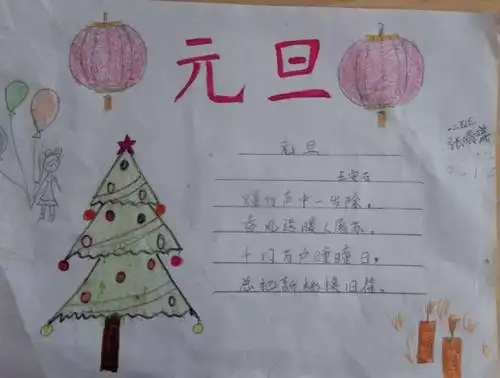 元旦
元旦
王安石
爆竹声中一岁除,
春风送暖入屠苏。
千门万户曈曈日,
总把新桃换旧符。